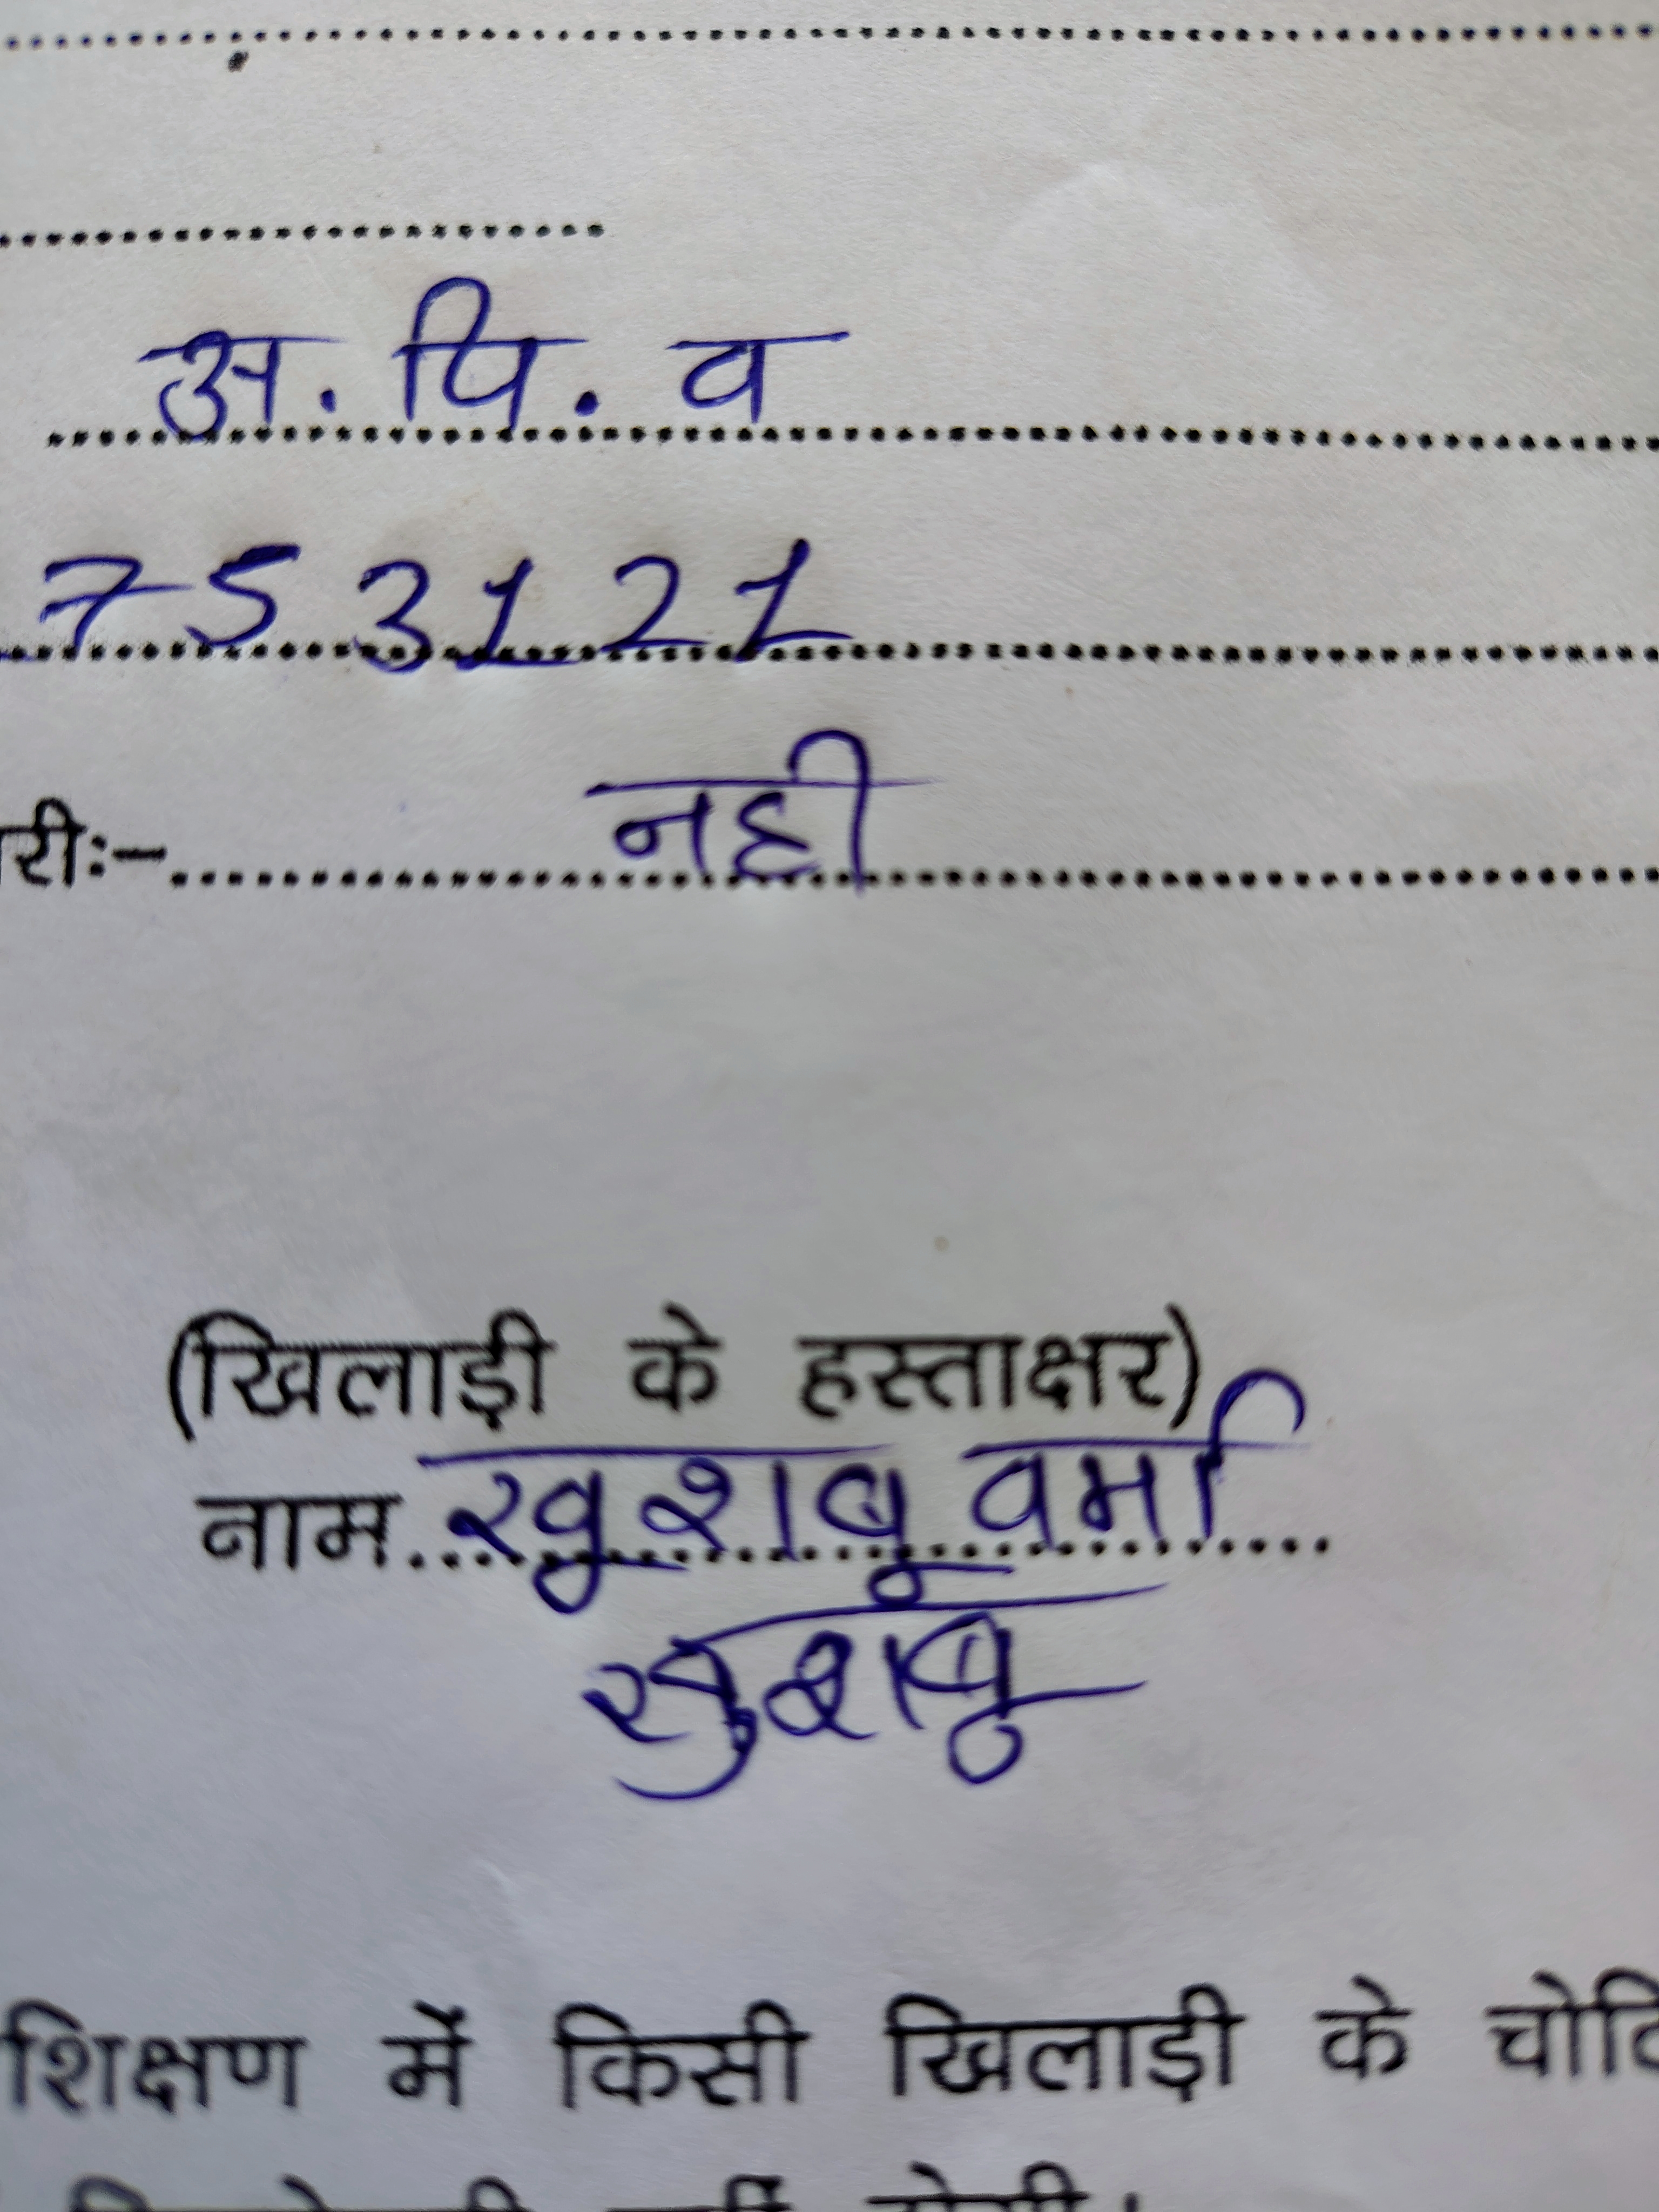 अ. पि. व
753121
री:- नही
(खिलाड़ी के हस्ताक्षर)
नाम खुशबू वर्मा
खुशबू
शिक्षण में किसी खिलाड़ी के चोटि